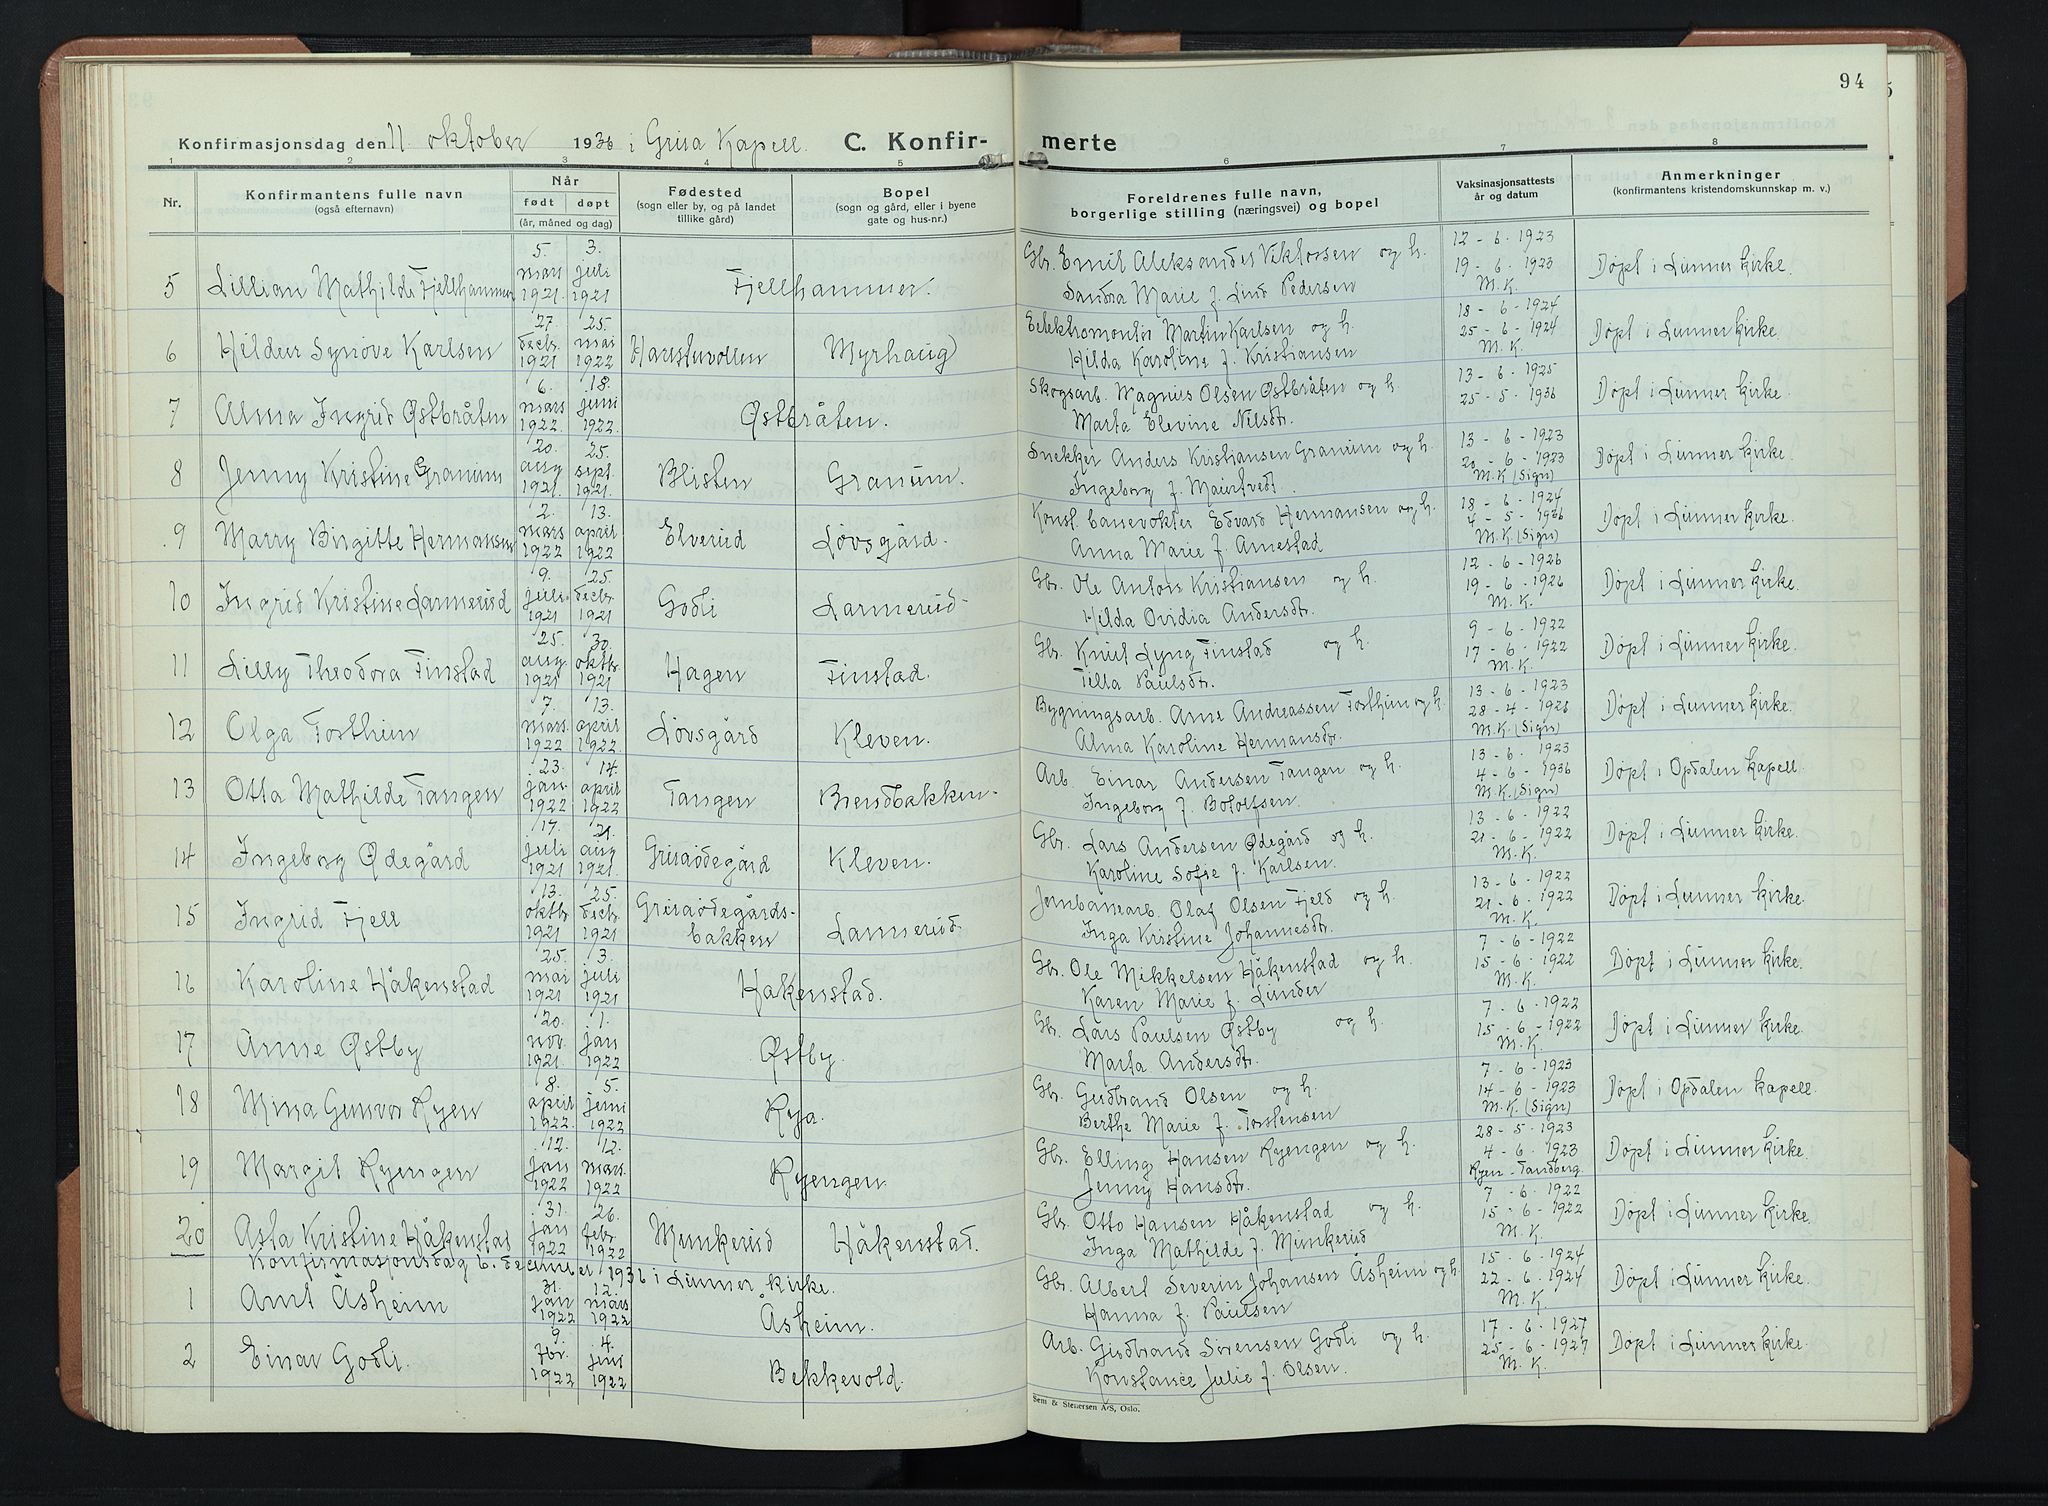 94
Konfirmasjonsdag den 11. oktober 1936 i Grua Kapell. C. Konfirmerte
1 2 3 4 5 6 7 8
Nr.
Konfirmantens fulle navn
(også efternavn)
Når
født døpt
(år, måned og dag)
Fødested
(sogn eller by, og på landet
tillike gård)
Bopel
(sogn og gård, eller i byene
gate og hus-nr.)
Foreldrenes fulle navn,
borgerlige stilling (næringsvei) og bopel
Vaksinasjonsattests
år og datum
Anmerkninger
(konfirmantens kristendomskunnskap m. v.)
5 Lillian Mathilde Fjellhammer
5. mars 1921 3. juli 1921
Fjellhammer.
Gbr. Emil Aleksander Viktorsen og h.
Sandra Marie f. Lind Pedersen
12 - 6 - 1923
19 - 6 - 1923
M. K.
Døpt i Lunner kirke.
6 Hildur Synøve Karlsen
27. decbr. 1921 25. mai 1922
Haustuvollen Myrhaug
Eelektromontør Martin Karlsen og h.
Hilda Karoline f. Kristiansen
18 - 6 - 1924
25 - 6 - 1924
M. K.
Døpt i Lunner kirke.
7 Alma Ingrid Østbråten
6. mars 1922. 18. juni 1922.
Østbråten.
Skogsarb. Magnus Olsen Østbråten og h.
Marta Elevine Nilsdtr.
13 - 6 - 1925
25 - 5 - 1936
Døpt i Lunner kirke.
8 Jenny Kristine Granum
20. aug 1921. 25. sept. 1921.
Blisten Granum.
Snekker Anders Kristiansen Granum og h.
Ingeborg f. Maurtvedt.
13 - 6 - 1923
20 - 6 - 1923
M. K (Sign)
Døpt i Lunner kirke.
9 Marry Birgitte Hermansen
2. mars 1922 13. april 1922
Elverud Løvsgård.
Konst. banevokter Edvard Hermansen og h.
Anna Marie f. Arnestad
18 - 6 - 1924
4 - 5 - 1936
M. K (Sign)
Døpt i Lunner kirke.
10 Ingrid Kristine Larmerud
9. juli 1921 25. decbr. 1921
Godli Larmerud
Gbr. Ole Anton Kristiansen og h.
Hilda Ovidia Andersdtr.
12 - 6 - 1926
19 - 6 - 1926
M. K.
Døpt i Lunner kirke.
11 Lilly Theodora Finstad
25. aug. 1921 30. oktbr. 1921
Hagen Finstad.
Gbr. Knut Lyng Finstad og h.
Tilla Paulsdtr.
9 - 6 - 1922
17 - 6 - 1922
M. K.
Døpt i Lunner kirke.
12 Olga Tosthun
7. mars. 1922 13. april 1922.
Løvsgård Kleven.
Bygningsarb. Arne Andreassen Tosthun og h.
Alma Karoline Hermansdtr.
13 - 6 - 1923
28 - 4 - 1936
M. K. (Sign)
Døpt i Lunner kirke.
13 Otta Mathilde Tangen
23. jan. 1922 14. april 1922
Tangen Brendbakken.
Arb. Einar Andersen Tangen og h.
Ingeborg f. Bololfsen.
13 - 6 - 1923
4 - 6 - 1936
M. K. (Sign)
Døpt i Opdalen kapell.
14 Ingeborg Ødegård
17. juli 1921 21. aug 1921.
Gruaødegård Kleven.
Gbr. Lars Andersen Ødegård og h.
Karoline Sofie f. Karlsen.
13 - 6 - 1922
21 - 6 - 1922
M. K.
Døpt i Lunner kirke.
15 Ingrid Fjell
13. oktbr 1921 25. decbr. 1921
Gruaødegårds-
bakken Larmerud.
Jernbanearb. Olaf Olsen Fjeld og h.
Inga Kristine Johannesdtr.
13 - 6 - 1922
21 - 6 - 1922
M. K.
Døpt i Lunner kirke.
16 Karoline Håkenstad
25. mai 1921 3. juli 1921
Håkenstad.
Gbr. Ole Mikkelsen Håkenstad og h.
Karen Marie f. Lunder
7 - 6 - 1922
15 - 6 - 1922
M. K.
Døpt i Lunner kirke.
17 Anne Østby
20. nov. 1921. 1. jan 1922
Østby.
Gbr. Lars Paulsen Østby og h.
Marta Andersdtr.
7 - 6 - 1922
15 - 6 - 1922
M. K.
Døpt i Lunner kirke.
18 Mina Gunvor Ryen
8. april 1922. 5. juni 1922
Rya.
Gbr. Gudbrand Olsen og h.
Berthe Marie f. Torstensen
7 - 6 - 1923
14 - 6 - 1923
M. K. (Sign)
Døpt i Opdalen kapell.
19 Margit Ryengen
12. jan 1922 12. mars. 1922
Ryengen
Gbr. Elling Hansen Ryengen og h.
Jenny Hansdtr.
28 - 5 - 1923
4 - 6 - 1923
Ryen - Tandberg.
Døpt i Lunner kirke.
20 Asta Kristine Håkenstad
31. jan 1922 26. febr. 1922
Munkerud Håkenstad.
Gbr. Otto Hansen Håkenstad og h.
Inga Mathilde f. Munkerud
7 - 6 - 1922
15 - 6 - 1922
M. K.
Døpt i Lunner kirke.
Konfirmasjonsdag 6. december 1936 i Lunner kirke.
1 Arnt Åsheim
31. jan 1922 12. mars 1922
Åsheim.
Gbr. Albert Severin Johansen Åsheim og h.
Hanna f. Paulsen
15 - 6 - 1924
22 - 6 - 1924
M. K.
Døpt i Lunner kirke.
2 Einar Godli.
9. fbr. 1922 4. juni 1922
Bekkevold.
Arb. Gudbrand Sørensen Godli og h.
Konstance Julie f. Olsen.
17 - 6 - 1927
25 - 6 - 1927
M. K.
Døpt i Lunner kirke.
Sem & Stenersen A/S, Oslo.